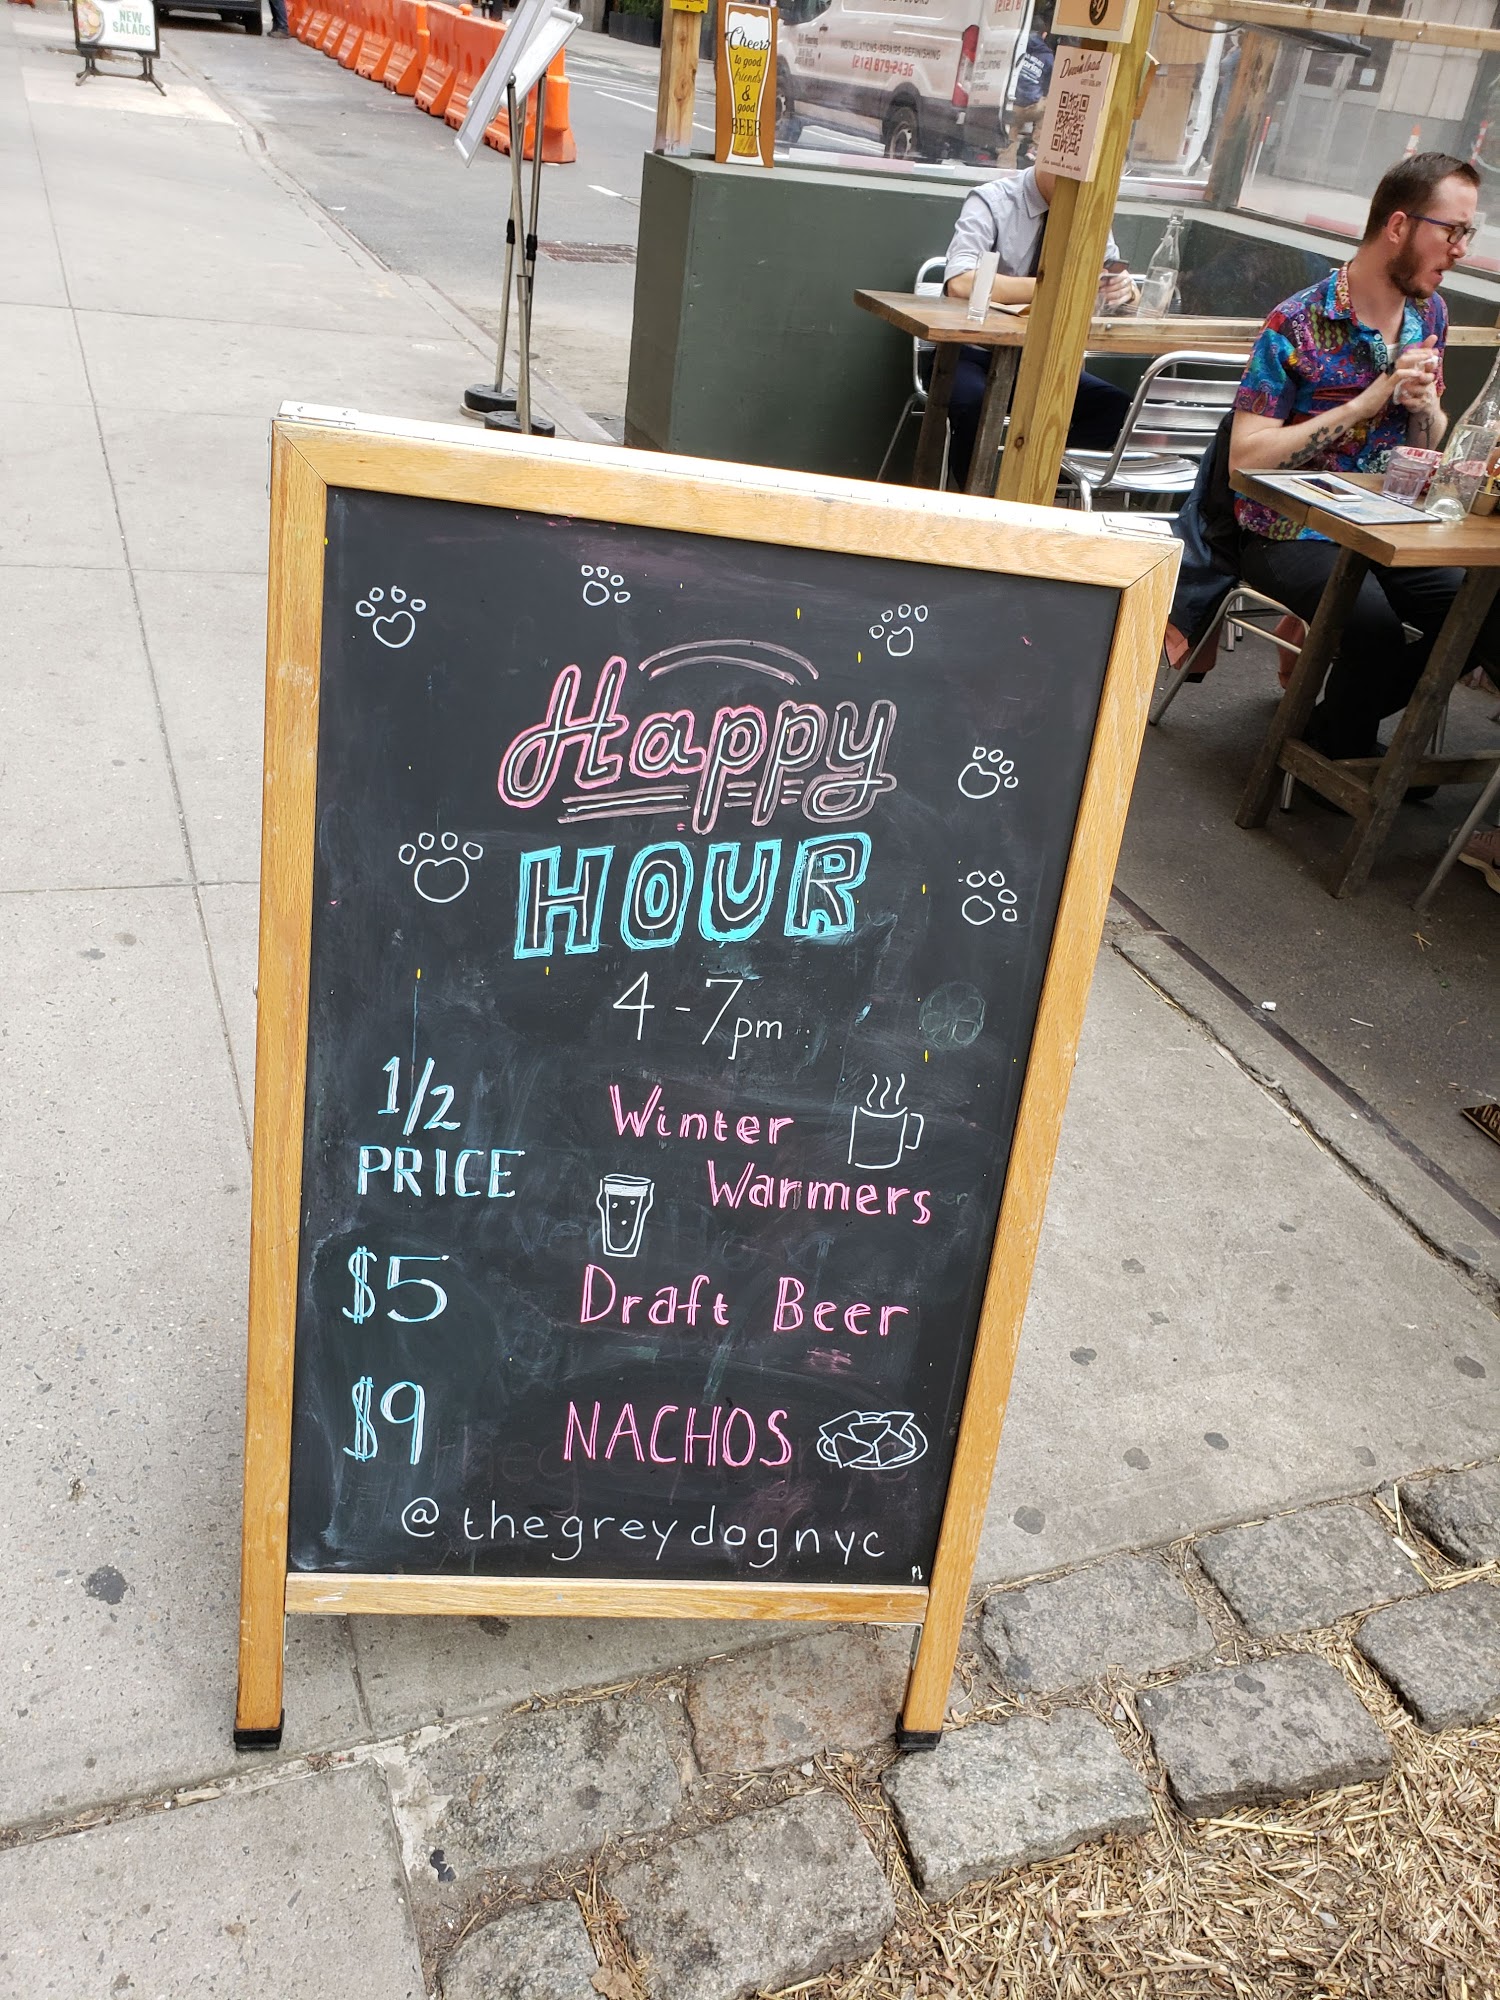 NEW
SALADS
Cheers
to good
friends
&
good
BEER
INSTALLATIONS-REPAIRS-REFINISHING
(212) 879-2436
Download
Happy
HOUR
4-7pm
1/2
PRICE
Winter
Warmers
$5
Draft Beer
$9
NACHOS
@thegreydognyc